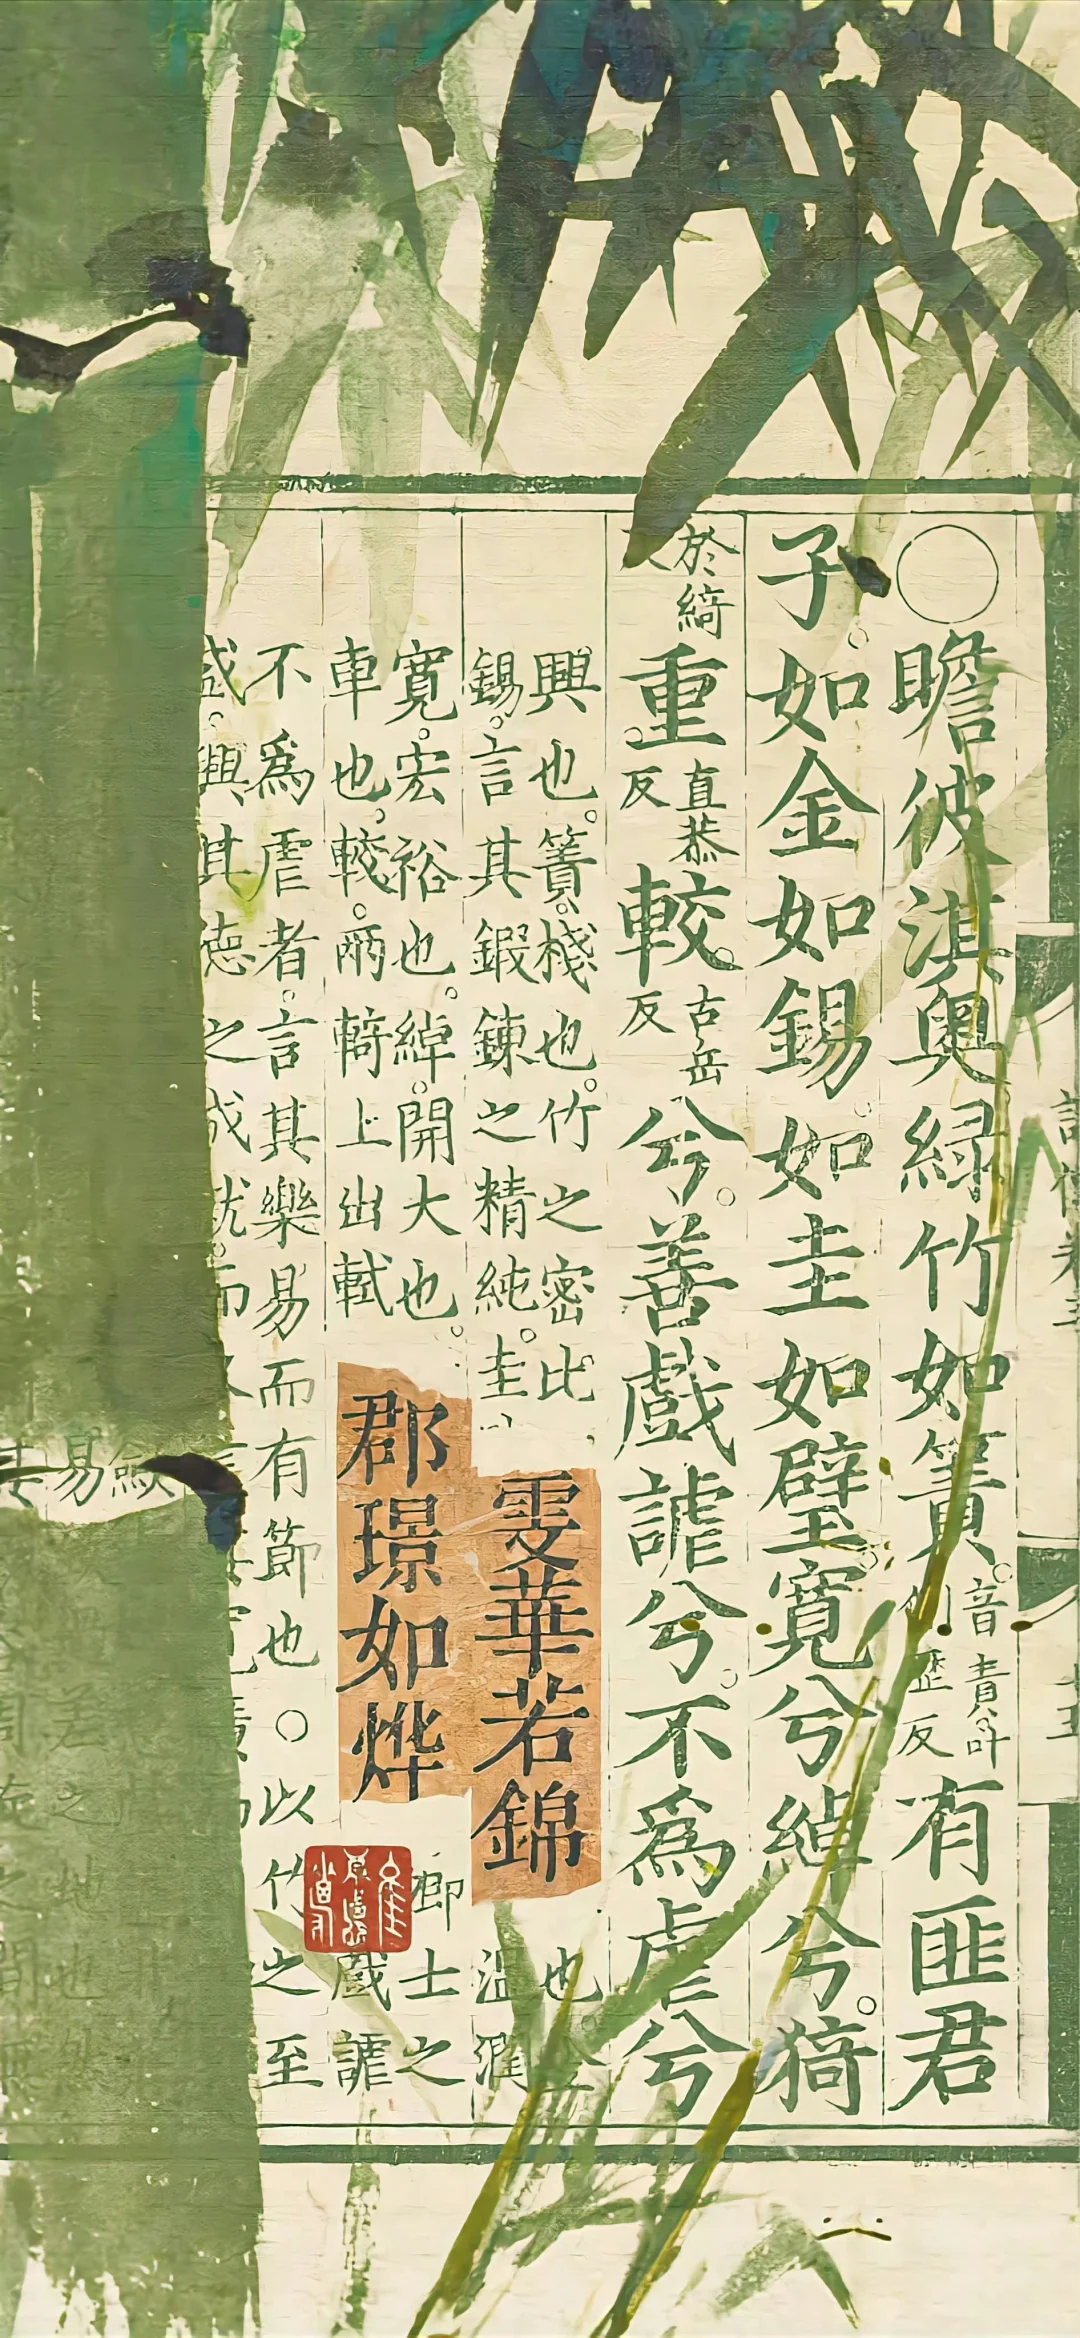 ○瞻彼淇奧綠竹如簀音責叶側歷反有匪君
子如金如錫如圭如璧寬兮綽兮猗
於綺反重直恭反較古岳反兮善戲謔兮不為虐兮
興也簀棧也竹之密比
錫言其鍛鍊之精純圭
也金
溫潤
寬宏裕也綽開大也
車也較兩輢上出軾
卿士之
戲謔
不為虐者言其樂易而有節也○以竹之至
盛興其德之成就而
雯華若錦
郡璟如燁
易歛